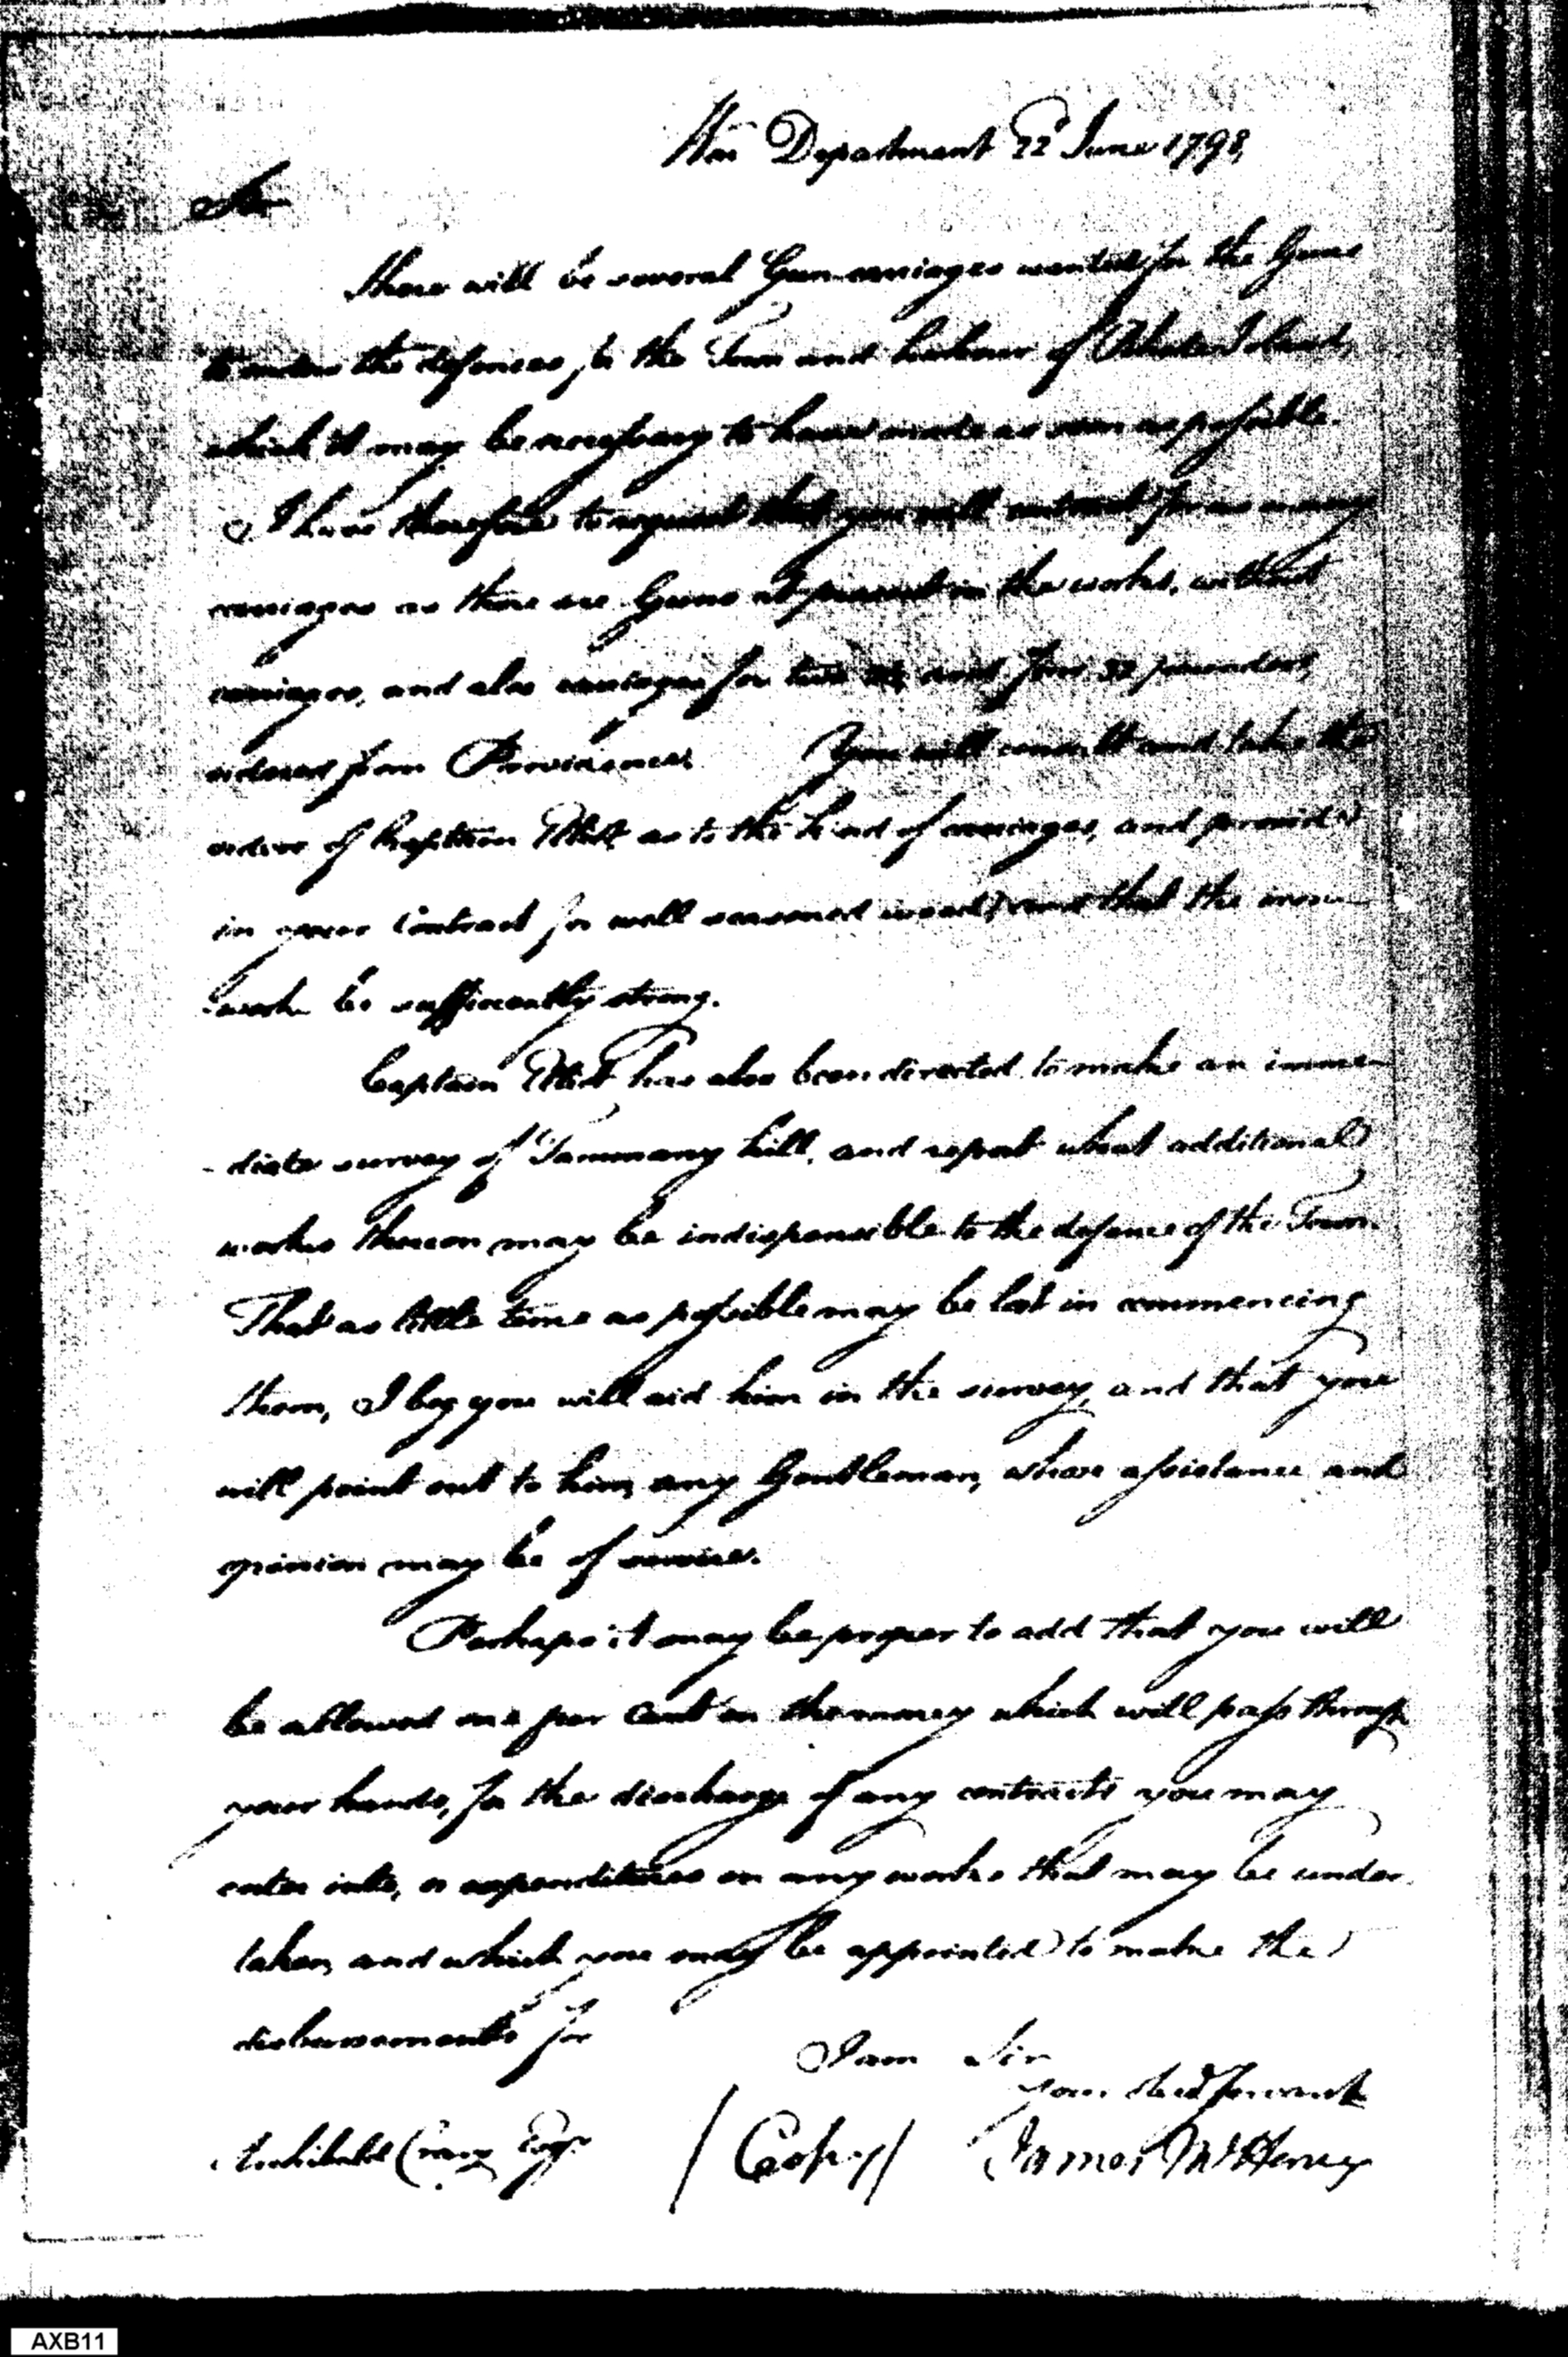 War Department 22d June 1798,
Sir
There will be several Gun-carriages wanted for the Guns
the defences for the Town and harbour of Rhode Island,
which it may be necessary to have made as soon as possible.
I have therefore to request that you will contract for as many
carriages as there are Guns at present in the works, without
carriages, and also carriages for two 24 and four 32 pounders,
ordered from Providence. You will consult and take the
advice of Captain as to the kind of carriages, and provide
in your Contract for well seasoned wood, and that the iron
work be sufficiently strong.
Captain has also been directed to make an imme-
-diate survey of Tammany hill, and report what additional
works thereon may be indispensible to the defence of the Town.
That as little time as possible may be lost in commencing
them, I beg you will aid him in the survey, and that you
will point out to him, any Gentleman, whose assistance and
opinion may be of service.
Perhaps it may be proper to add that you will
be allowed one per Cent on the money which will pass through
your hands, for the discharge of any contracts you may
enter into, or expenditures on any works that may be under
taken, and which you may be appointed to make the
disbursements for
I am Sir
your obed Servant
Archibald Crary Esqr (Copy) James McHenry
AXB11